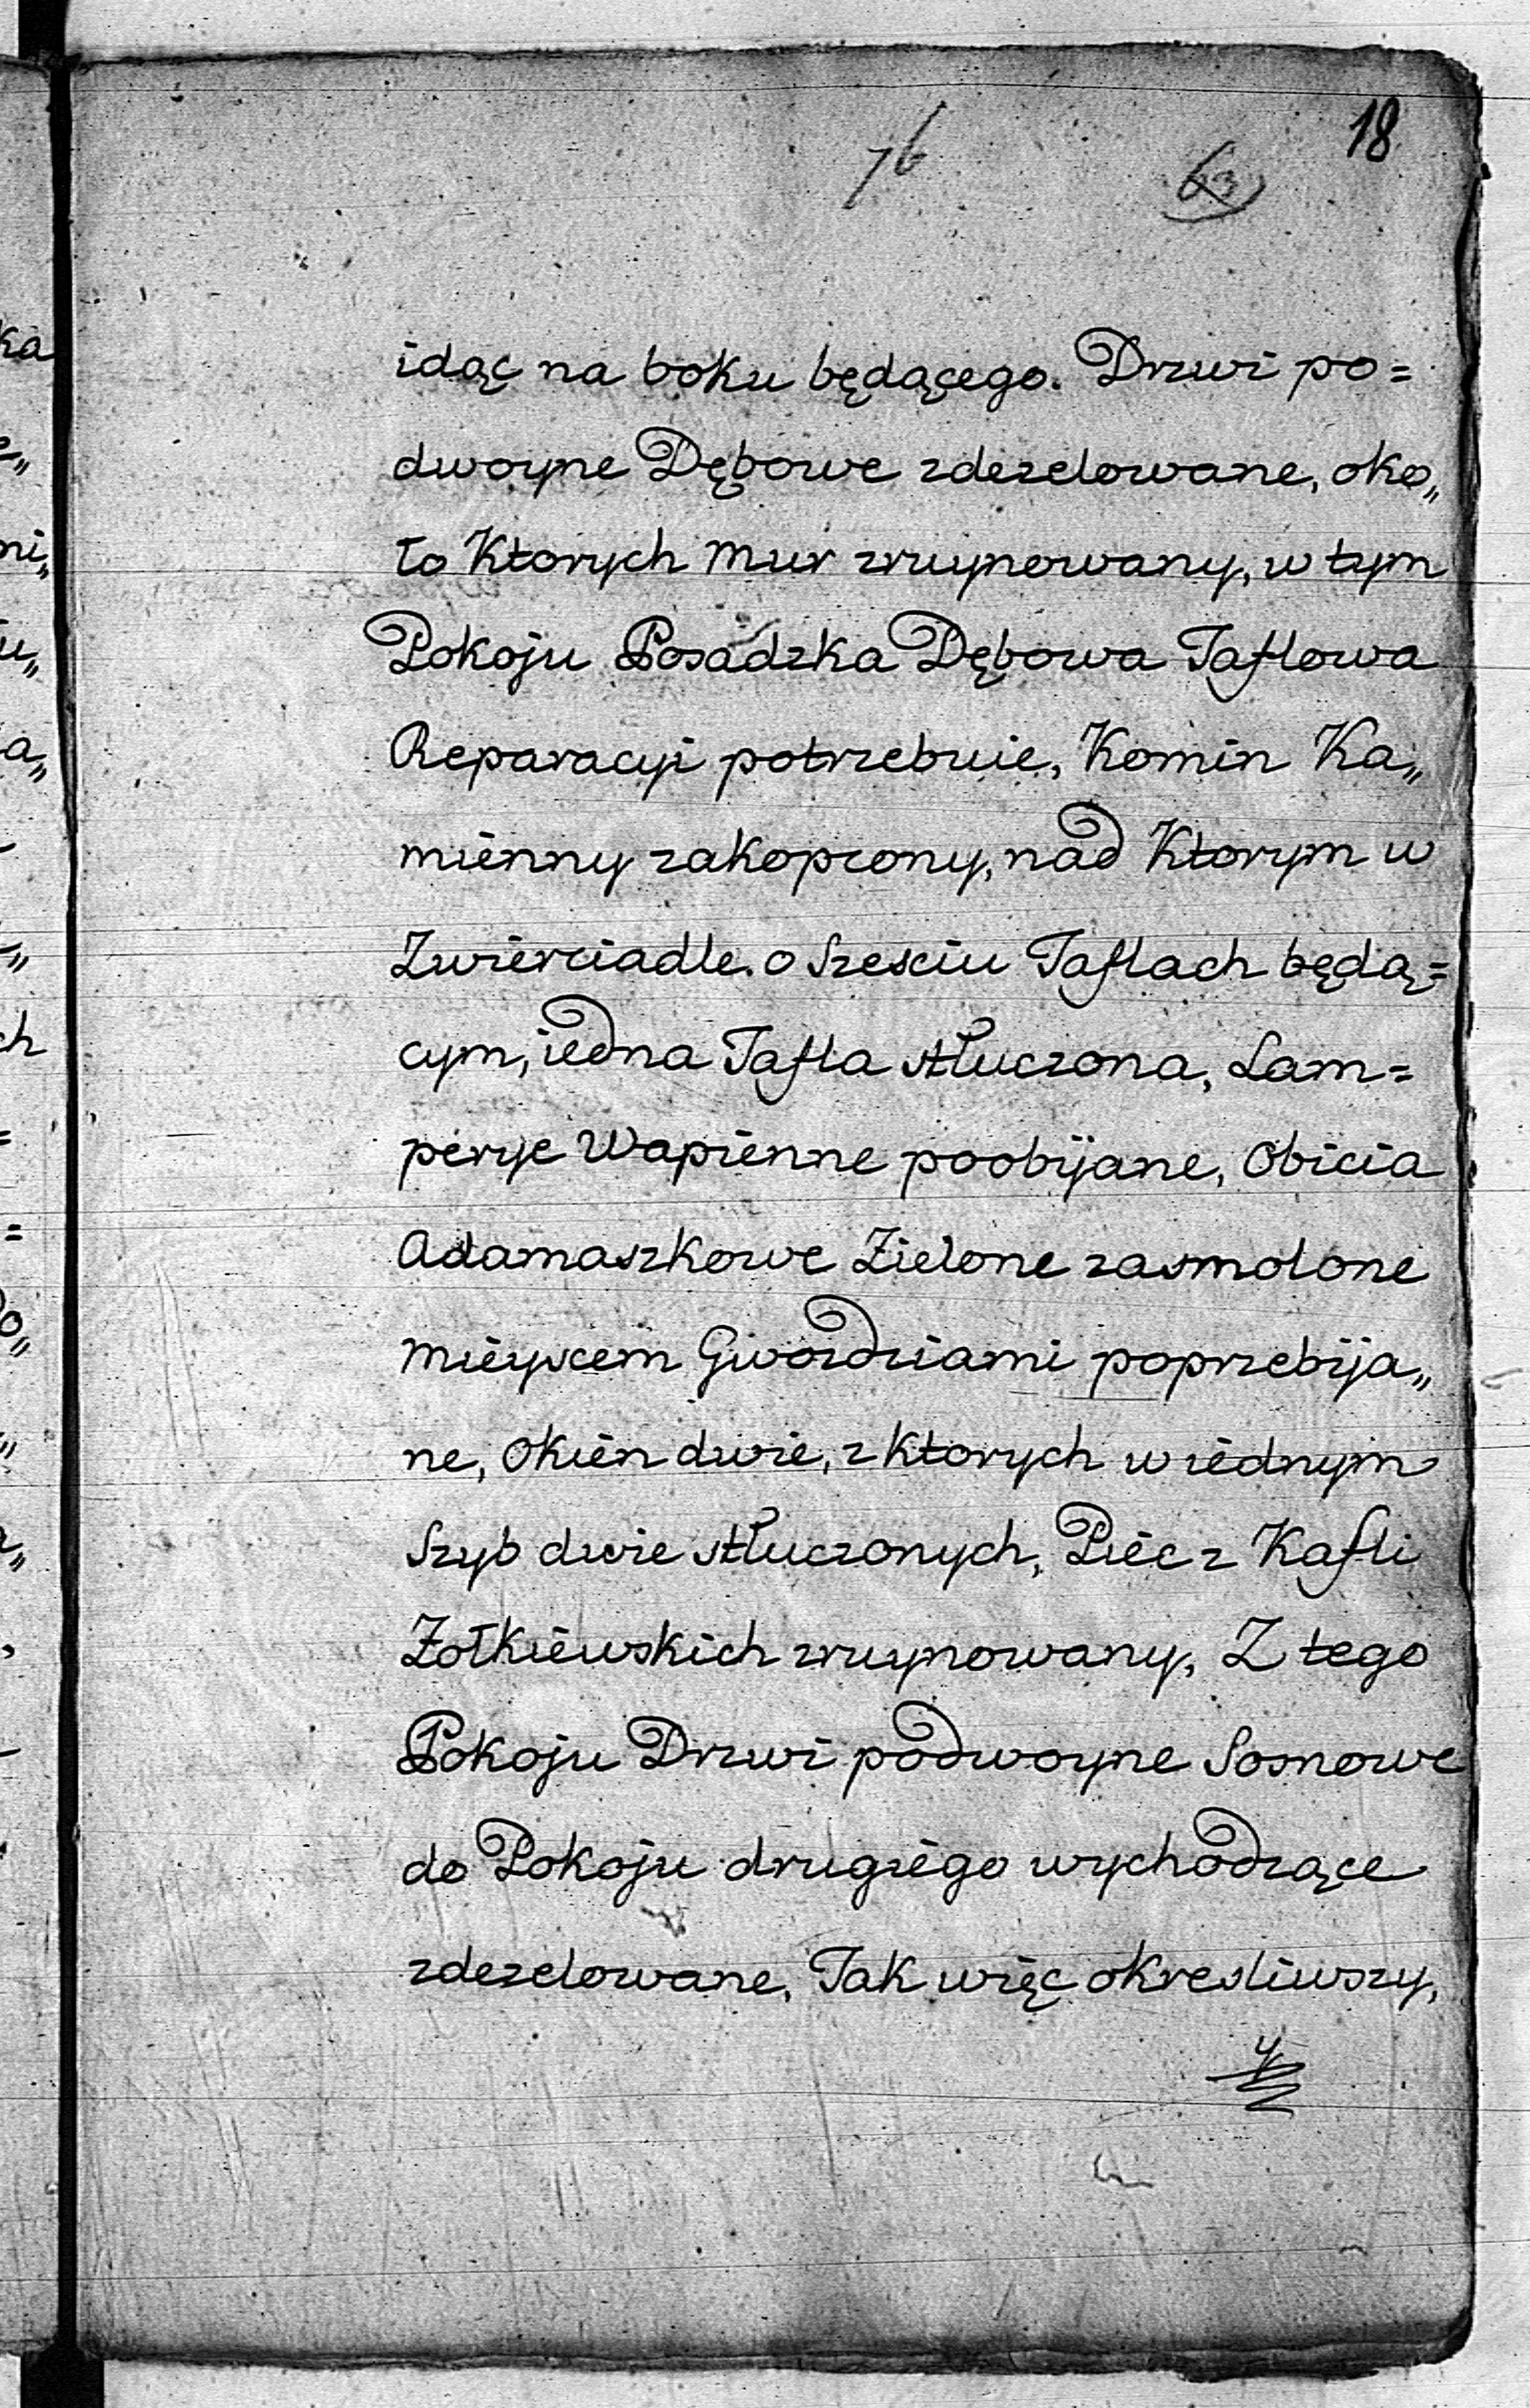 18
76
63
idąc na boku będącego. Drzwi po=
dwoyne Dębowe zdezelowane, oko„
ło Ktorych mur zruynowany, w tym
Pokoju Posadzka Dębowa Taflowa
Reparacyi potrzebuie, Komin Ka„
mienny zakopcony, nad Ktorym w
Zwierciadle o Szesciu Taflach będą=
cym, iedna Tafla stłuczona, Lam=
perye Wapienne poobijane, Obicia
Adamaszkowe Zielone zasmolone
mieyscem Gwozdziami poprzebija„
ne, Okien dwie, z Ktorych w iednym
Szyb dwie stłuczonych, Piec z Kafli
Zołkiewskich zruynowany, Z tego
Pokoju Drzwi podwoyne Sosnowe
do Pokoju drugiego wychodzące
zdezelowane, Tak więc okresliwszy,
y